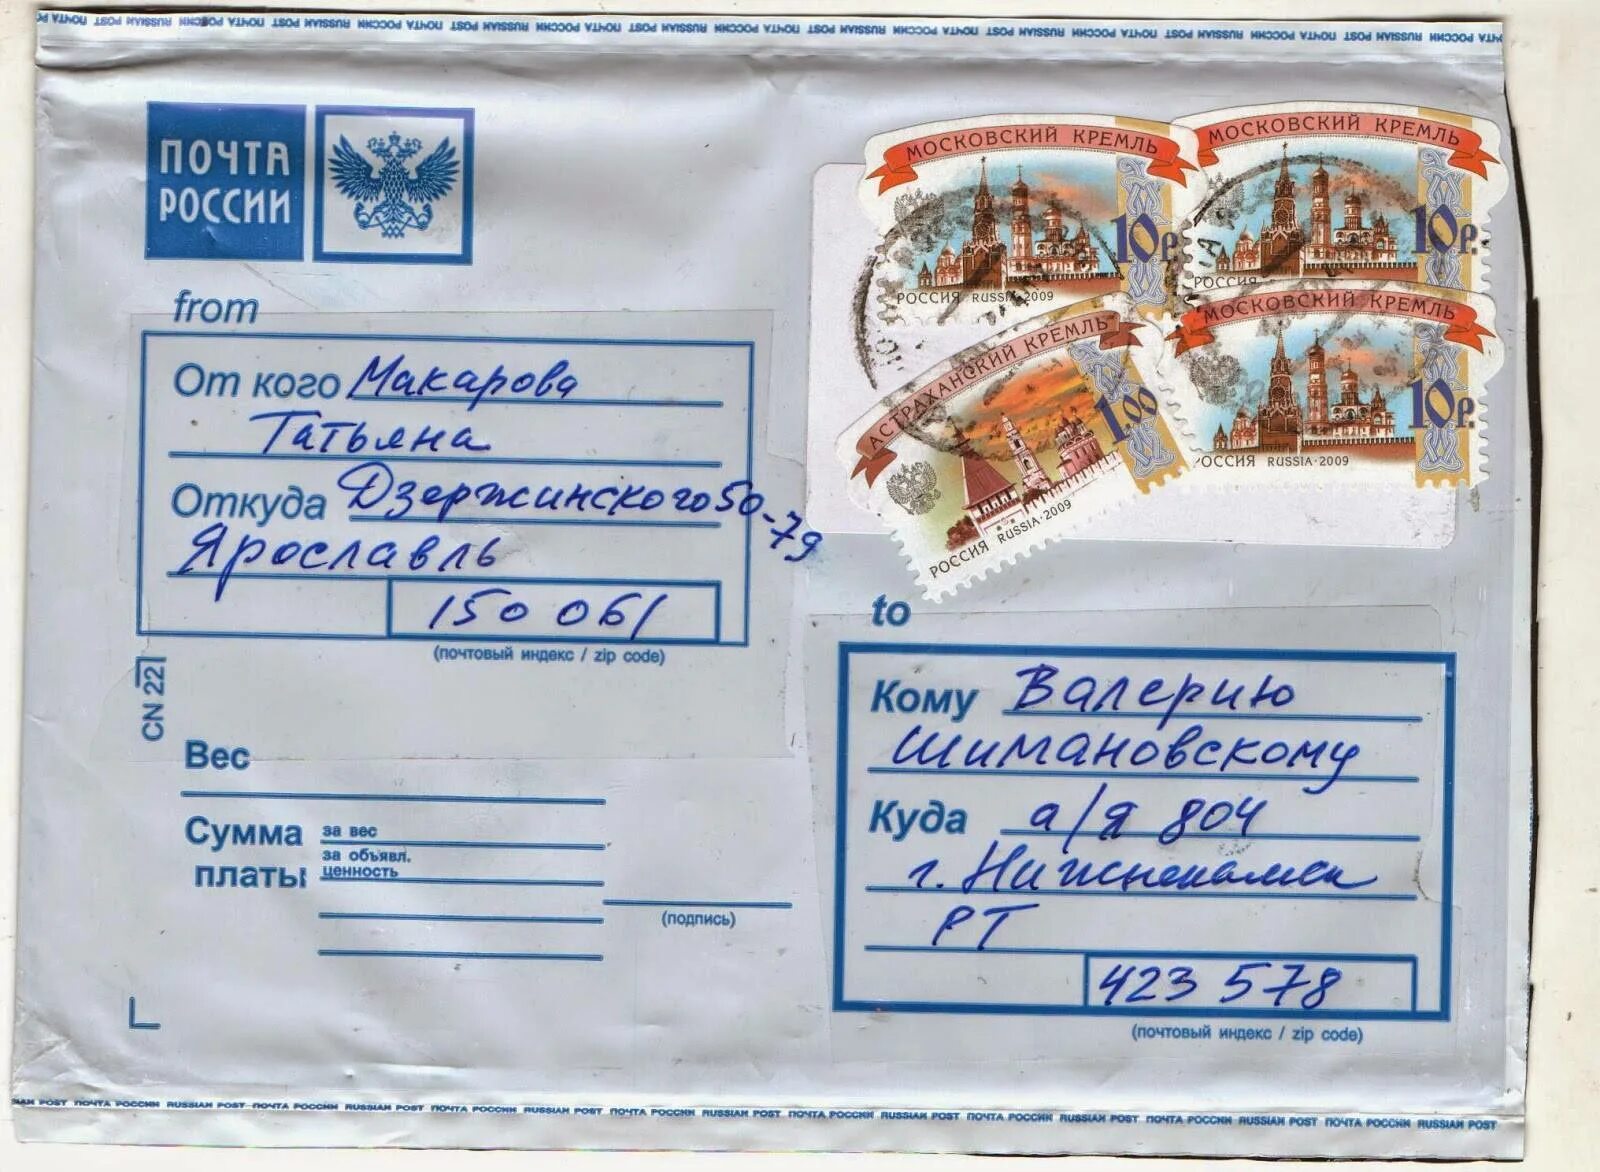 ПОЧТА РОССИИ RUSSIAN POST ПОЧТА РОССИИ RUSSIAN POST ПОЧТА РОССИИ RUSSIAN POST ПОЧТА РОССИИ RUSSIAN POST ПОЧТА РОССИИ RUSSIAN POST ПОЧТА РОССИИ RUSSIAN POST ПОЧТА РОССИИ RUSSIAN POST ПОЧТА
ПОЧТА
РОССИИ
МОСКОВСКИЙ КРЕМЛЬ
10р.
РОССИЯ RUSSIA·2009
МОСКОВСКИЙ КРЕМЛЬ
10р.
РОССИЯ
АСТРАХАНСКИЙ КРЕМЛЬ
1.00
РОССИЯ RUSSIA·2009
МОСКОВСКИЙ КРЕМЛЬ
10р.
РОССИЯ RUSSIA·2009
from
От кого Макарова
Татьяна
Откуда Дзержинского 50-79
Ярославль
150 061
(почтовый индекс / zip code)
CN 22
Вес
Сумма
платы
за вес
за объявл.
ценность
(подпись)
to
Кому Валерию
Шимановскому
Куда а/я 804
г. Нижнекамск
РТ
423 578
(почтовый индекс / zip code)
RUSSIAN POST ПОЧТА РОССИИ RUSSIAN POST ПОЧТА РОССИИ RUSSIAN POST ПОЧТА РОССИИ RUSSIAN POST ПОЧТА РОССИИ RUSSIAN POST ПОЧТА РОССИИ RUSSIAN POST ПОЧТА РОССИИ RUSSIAN POST ПОЧТА РОССИИ RUSSIAN POST ПОЧТА РОССИИ RUSSIAN POST